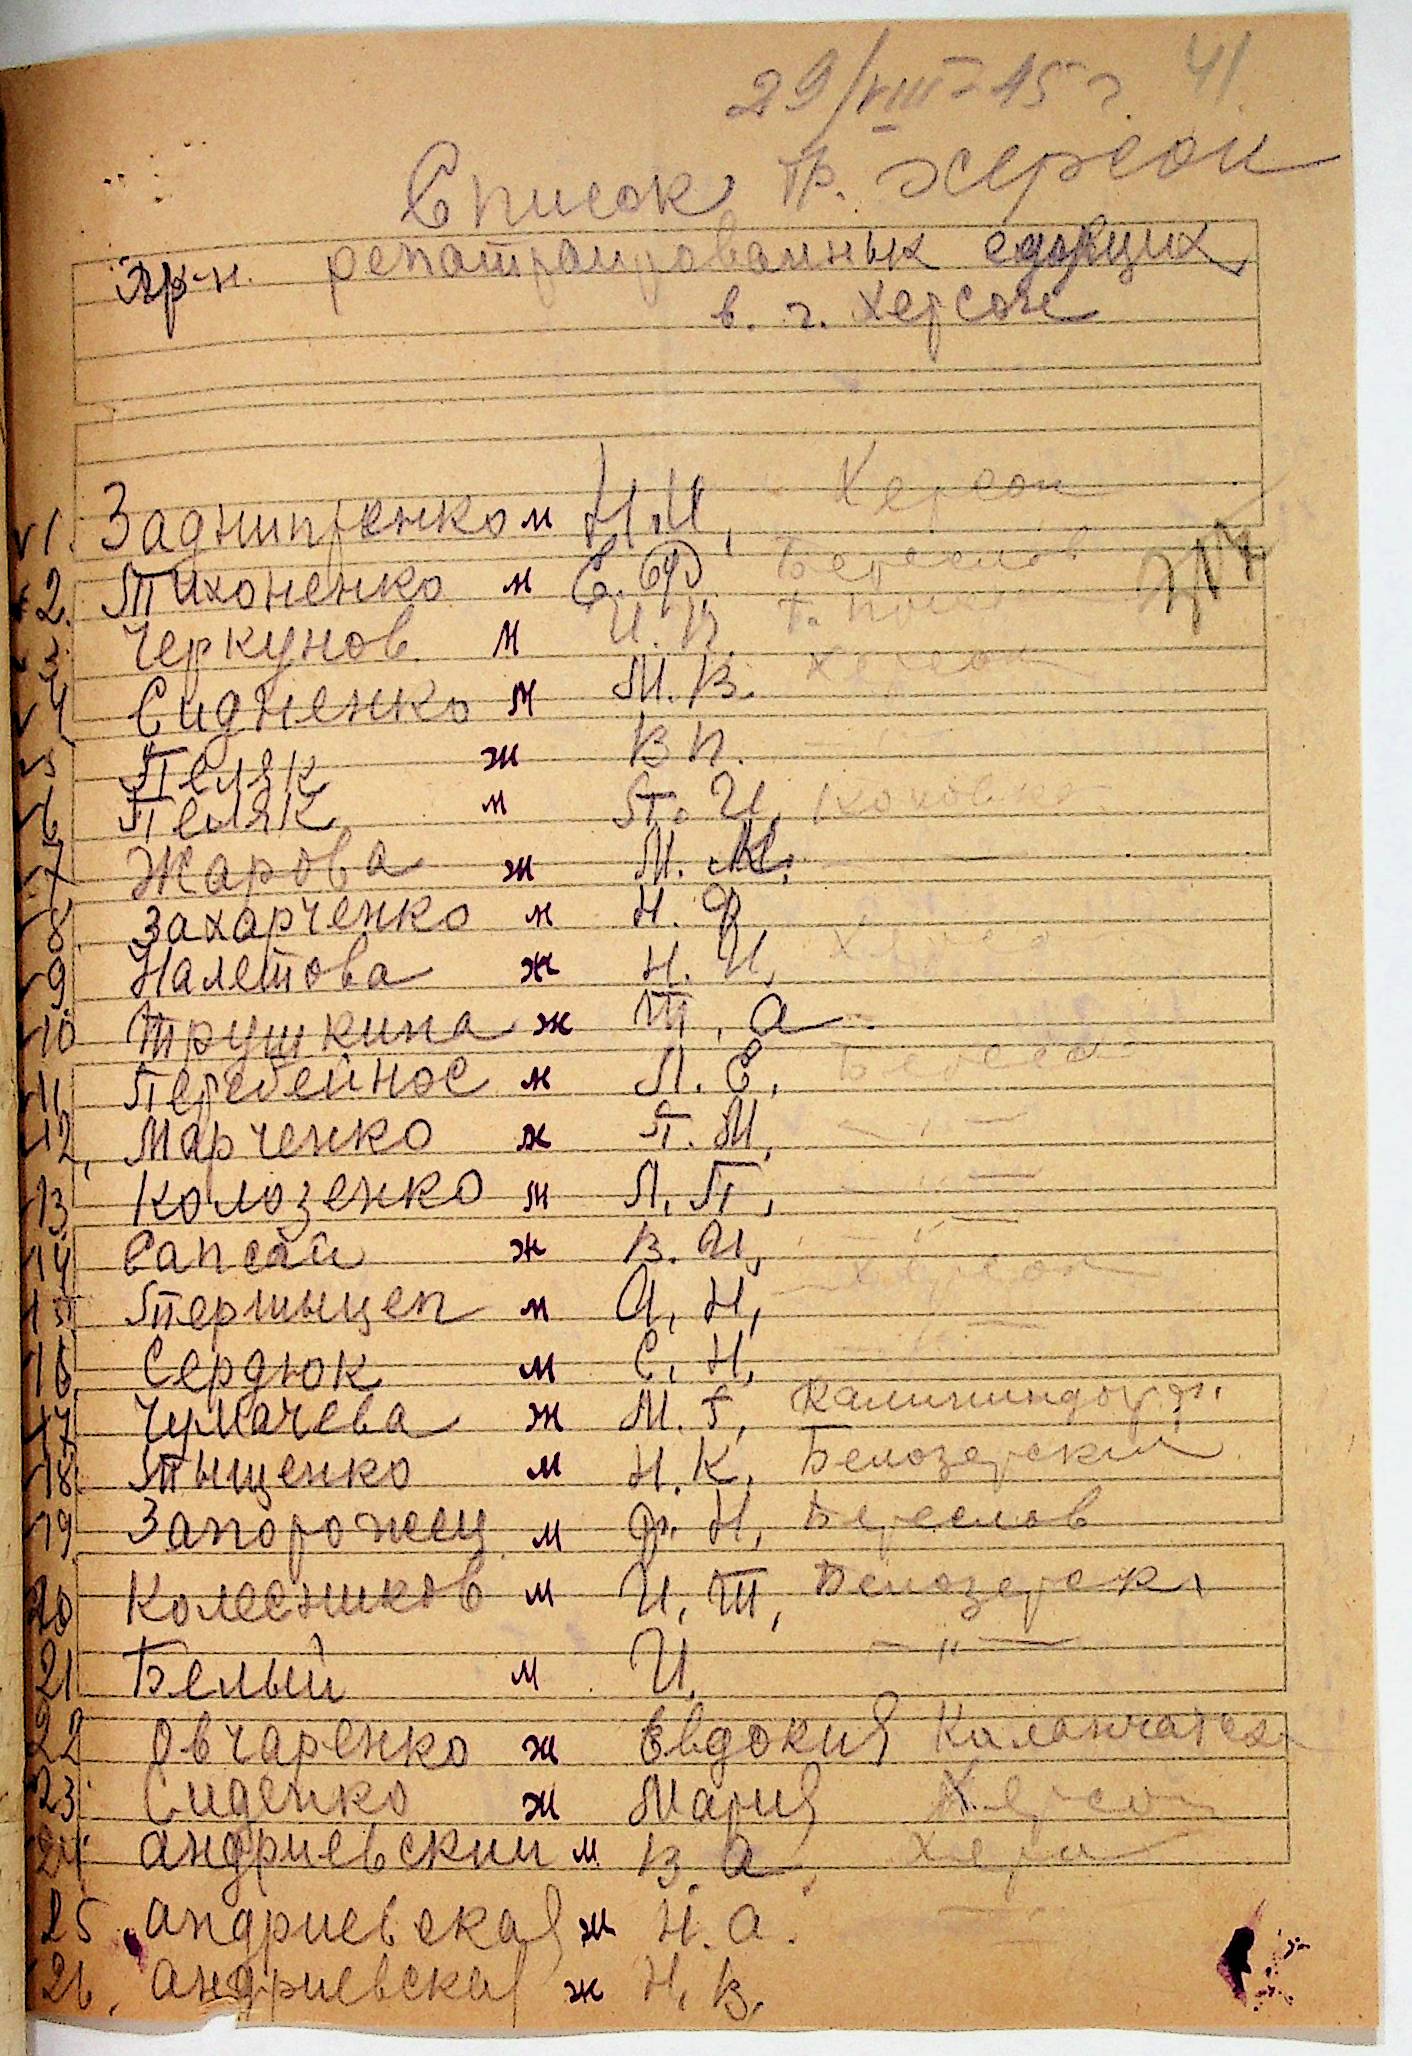 29/VIII-45 г. 41.
Список гр. Херсон
гр-н. репатриированных едущих
в. г. Херсон
1. Заднипренко м Н.И. Херсон
2. Тихоненко м Е.Ф. Берислов 217
3. Черкунов м И.В.
4 Сидненко м М.В. Херсон
5 Пеляк ж В П.
6 Пеляк м П. И. Каховка
7 Жарова ж М. М.
8. Захарченко м Н. Ф.
9 Налетова ж Н. И. Херсон
10 Трушкина ж Т. А
11 Перебейнос м Л. Е. Берислов
12, Марченко ж П. М. — " —
13 Колозенко м Л. П. — " —
14 Сапсай ж В. И. — " —
15 Першыцеп м А. Н. Херсон
16 Сердюк м С. Н. — " —
17 Чумачева ж М. Г. Калининдорф
18. Тыщенко м Н. К. Белозерский
19 Запорожец м Ф. Н. Береслов
20 Колесников м И. Т. Белозерск.
21 Белый м И. — " —
22 Овчаренко ж Евдокия Каланчатск
23 Сиденко ж Мария Херсон
24 Андриевский м В. А. Херсон
25. Андриевская ж Н. А. — " —
26. Андриевская ж Н. В.